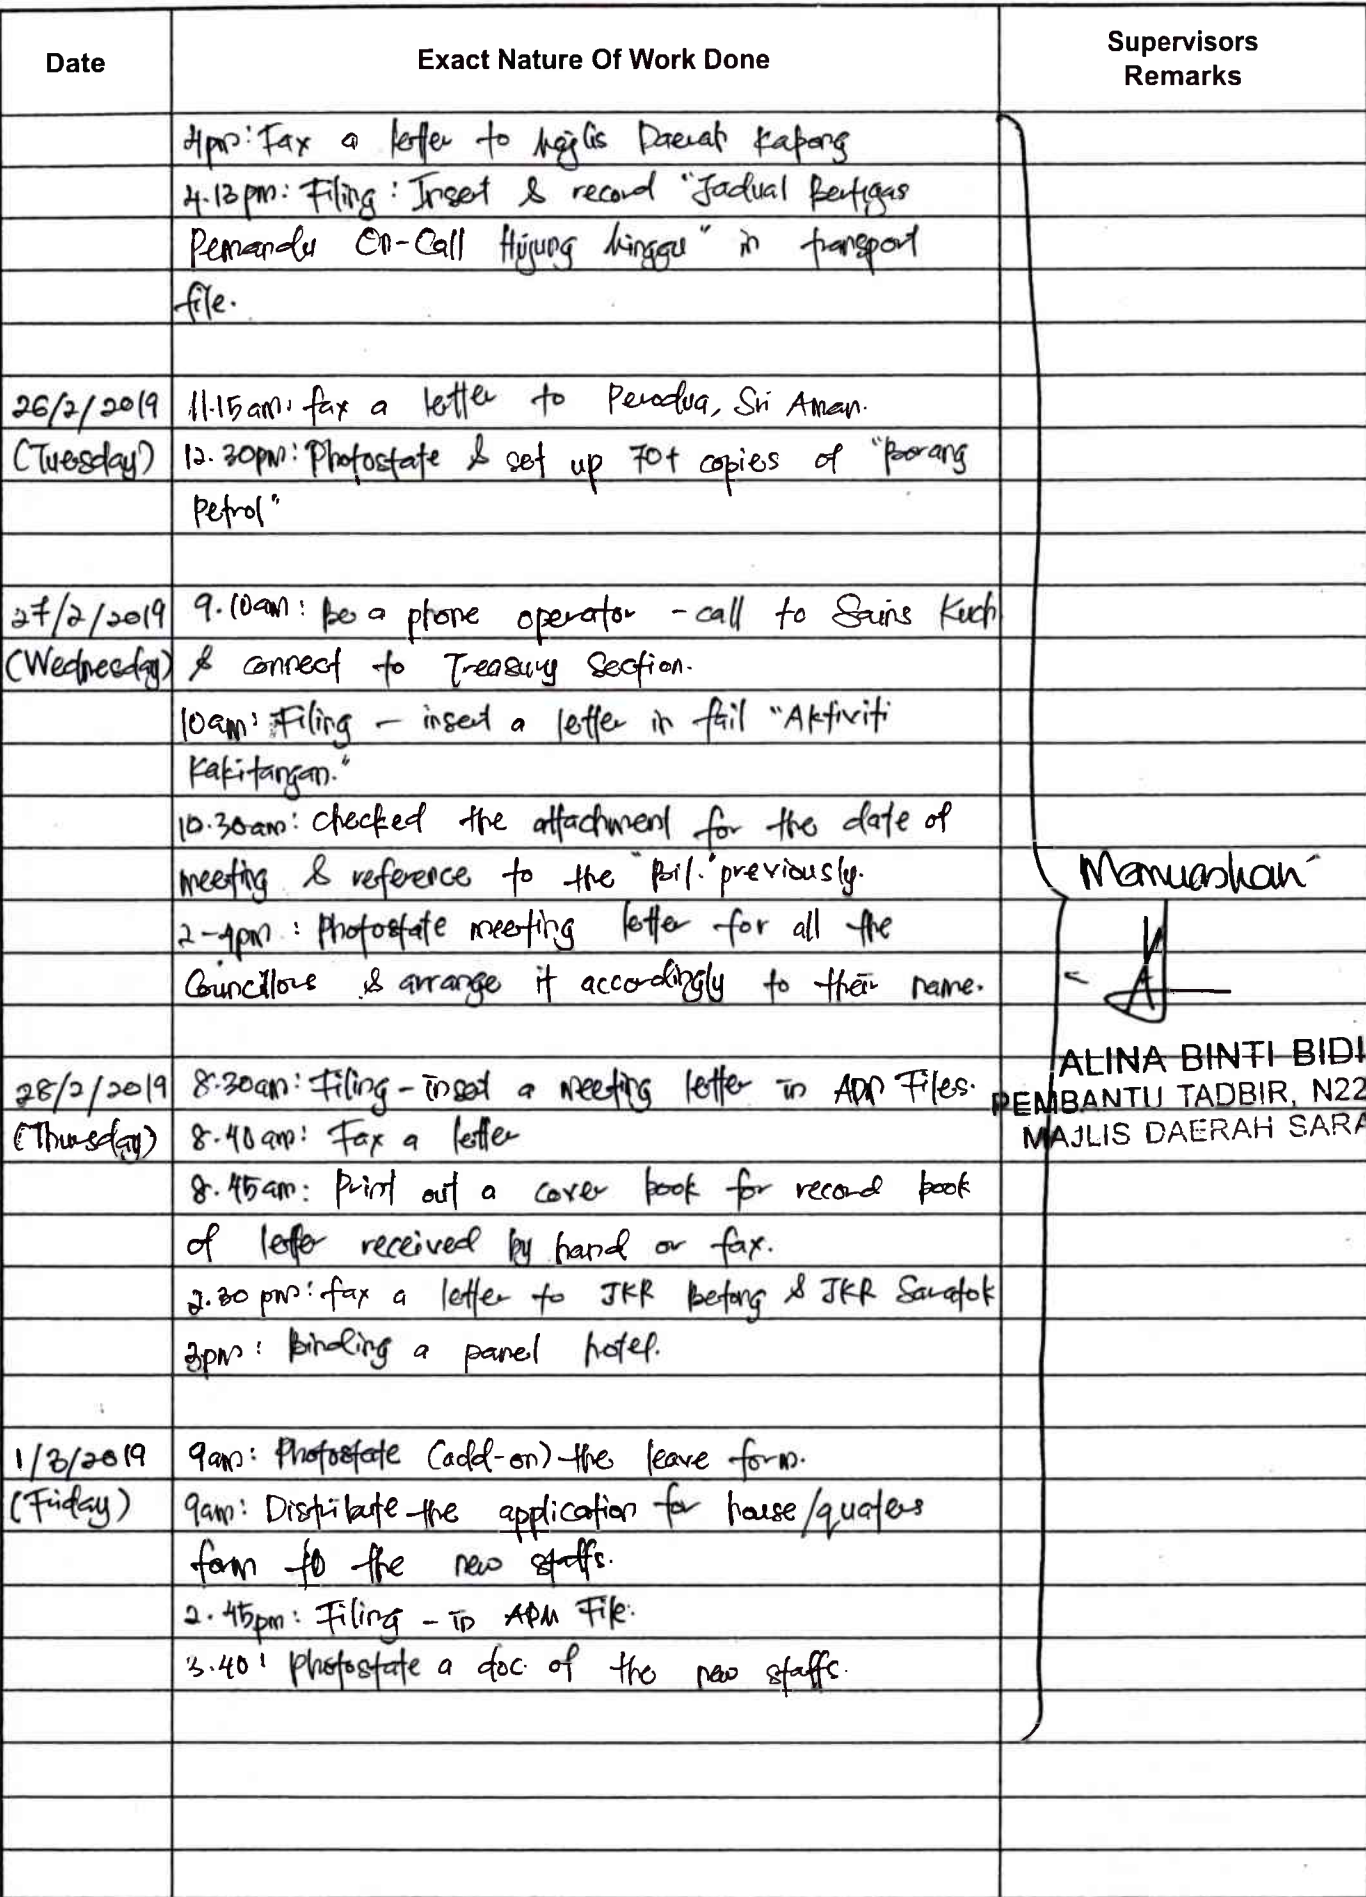 Date Exact Nature Of Work Done Supervisors Remarks
4pm: Fax a letter to Majlis Daerah Kabong
4.13pm: Filing: Insert & record "Jadual Bertugas
Pemandu On-Call Hujung Minggu" in transport
file.
26/2/2019 11.15am: fax a letter to Perodua, Sri Aman.
(Tuesday) 12.30pm: Photostate & set up 70+ copies of "Borang
Petrol"
27/2/2019 9.10am: Be a phone operator - call to Sains Kuch
(Wednesday) & connect to Treasury Section.
10am: Filing - insert a letter in fail "Aktiviti
Kakitangan."
10.30am: Checked the attachment for the date of
meeting & reference to the "Bil." previously.
Memuaskan
2-4pm: Photostate meeting letter for all the
Councillors & arrange it accordingly to their name.
ALINA BINTI BIDI
28/2/2019 8.30am: Filing - insert a meeting letter in APM Files.
PEMBANTU TADBIR, N22
(Thursday) 8.40am: Fax a letter
MAJLIS DAERAH SARA
8.45am: Print out a cover book for record book
of letter received by hand or fax.
2.30pm: fax a letter to JKR Betong & JKR Saratok
3pm: Binding a panel hotel.
1/3/2019 9am: Photostate (add-on) the leave form.
(Friday) 9am: Distribute the application for house/quaters
form to the new staffs.
2.45pm: Filing - in APM File.
3.40: Photostate a doc. of the new staffs.